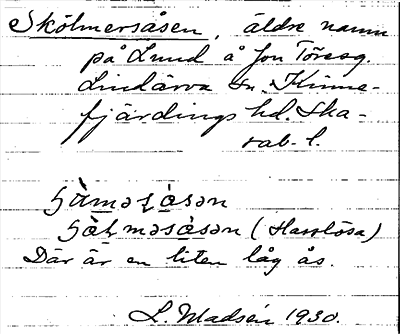 Skölmersåsen, äldre namn
på Lund å Jon Töresg.
Lindärva sn. Kinne-
fjärdings hd. Ska-
rab. l.
(Harrlösa)
Där är en liten låg ås.
L. Madsén 1930.